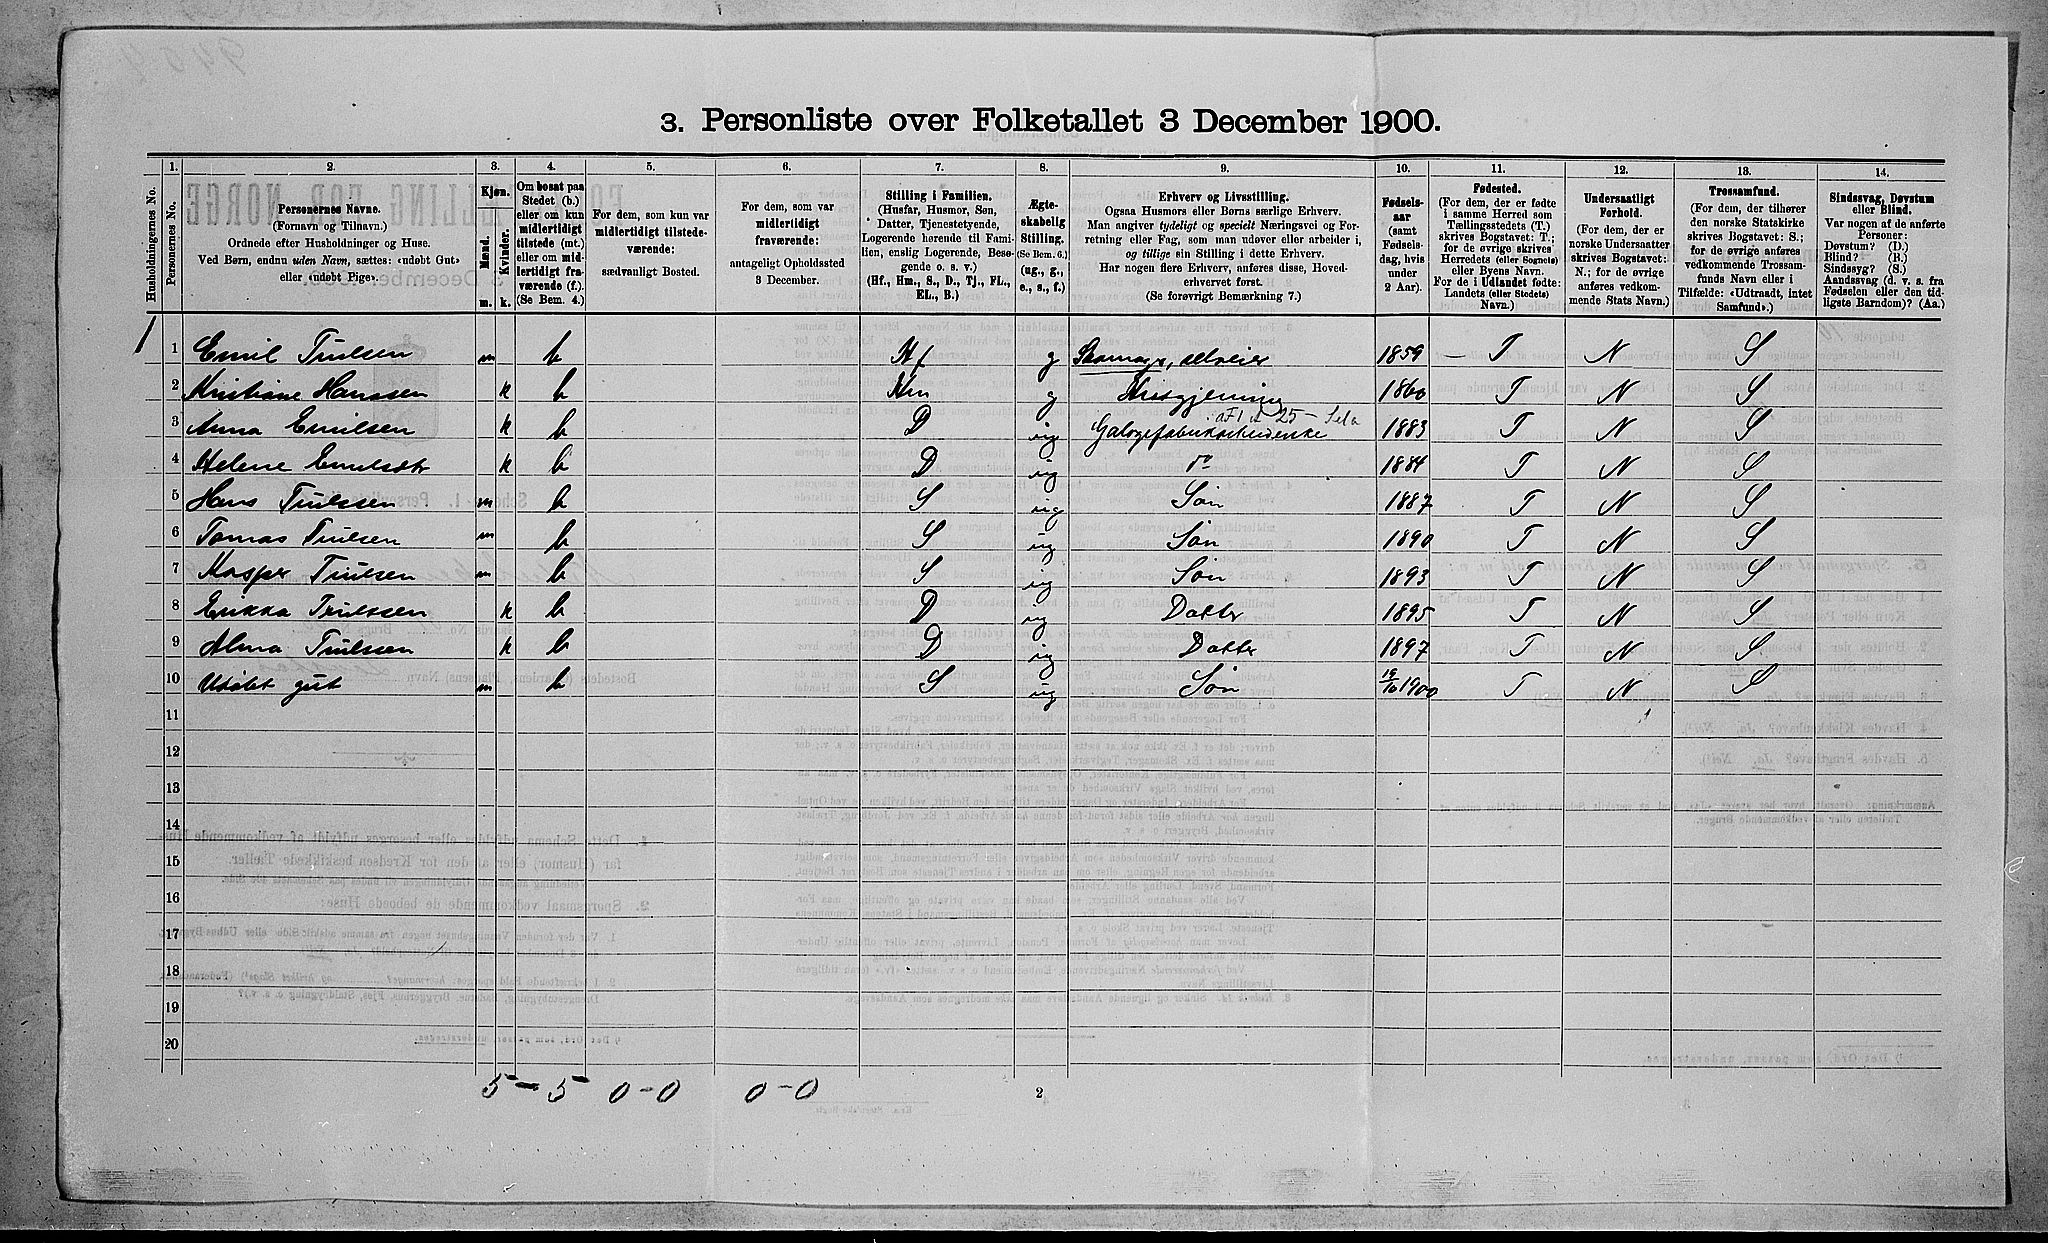 3. Personliste over Folketallet 3 December 1900.
1. 2. 3. 4. 5. 6. 7. 8. 9. 10. 11. 12. 13. 14.
Husholdningernes No.
Personernes No.
Personernes Navne.
(Fornavn og Tilnavn.)
Ordnede efter Husholdninger og Huse.
Ved Børn, endnu uden Navn, sættes: «udøbt Gut»
eller «udøbt Pige».
Kjøn.
Mænd.
Kvinder.
m. k.
Om bosat paa
Stedet (b.)
eller om kun
midlertidigt
tilstede (mt.)
eller om mid-
lertidigt fra-
værende (f.).
(Se Bem. 4.)
For dem, som kun var
midlertidigt tilstede-
værende:
sædvanligt Bosted.
For dem, som var
midlertidigt
fraværende:
antageligt Opholdssted
3 December.
Stilling i Familien.
(Husfar, Husmor, Søn,
Datter, Tjenestetyende,
Logerende hørende til Fami-
lien, enslig Logerende, Besø-
gende o. s. v.)
(Hf., Hm., S., D., Tj., FL.,
EL., B.)
Ægte-
skabelig
Stilling.
(Se Bem. 6.)
(ug., g.,
e., s., f.)
Erhverv og Livsstilling.
Ogsaa Husmors eller Børns særlige Erhverv.
Man angiver tydeligt og specielt Næringsvei og For-
retning eller Fag, som man udøver eller arbeider i,
og tillige sin Stilling i dette Erhverv.
Har nogen flere Erhverv, anføres disse, Hoved-
erhvervet først.
(Se forøvrigt Bemærkning 7.)
Fødsels-
aar
(samt
Fødsels-
dag, hvis
under
2 Aar).
Fødested.
(For dem, der er fødte
i samme Herred som
Tællingsstedets (T.)
skrives Bogstavet: T.;
for de øvrige skrives
Herredets (eller Sognets)
eller Byens Navn.
For de i Udlandet fødte:
Landets (eller Stedets)
Navn.)
Undersaatligt
Forhold.
(For dem, der er
norske Undersaatter
skrives Bogstavet:
N.; for de øvrige
anføres vedkom-
mende Stats Navn.)
Trossamfund.
(For dem, der tilhører
den norske Statskirke
skrives Bogstavet: S.;
for de øvrige anføres
vedkommende Trossam-
funds Navn eller i
Tilfælde: «Udtraadt, intet
Samfund».)
Sindssvag, Døvstum
eller Blind.
Var nogen af de anførte
Personer:
Døvstum? (D.)
Blind? (B.)
Sindssyg? (S.)
Aandssvag (d. v. s. fra
Fødselen eller den tid-
ligste Barndom)? (Aa.)
1 1 Emil Trulsen m b Hf g Skomager, selveier 1859 – T N S
2 Kristiane Hanssen k b Hm g Husgjerning 1860 T N S
25 –
3 Anna Emilsen k b D ug Galogefabrikarbeiderske 1883 T N S
4 Helene Emilsdtr k b D ug do 1884 T N S
5 Hans Trulssen m b S ug Søn 1887 T N S
6 Tomas Trulsen m b S ug Søn 1890 T N S
7 Kasper Trulsen m b S ug Søn 1893 T N S
8 Erikka Trulssen k b D ug Datter 1895 T N S
9 Alma Trulssen k b D ug Datter 1897 T N S
10 Udøbt gut m b S ug Søn 19/10 1900 T N S
11
12
13
14
15
16
17
18
19
20
5 – 5 0 – 0 0 – 0
2